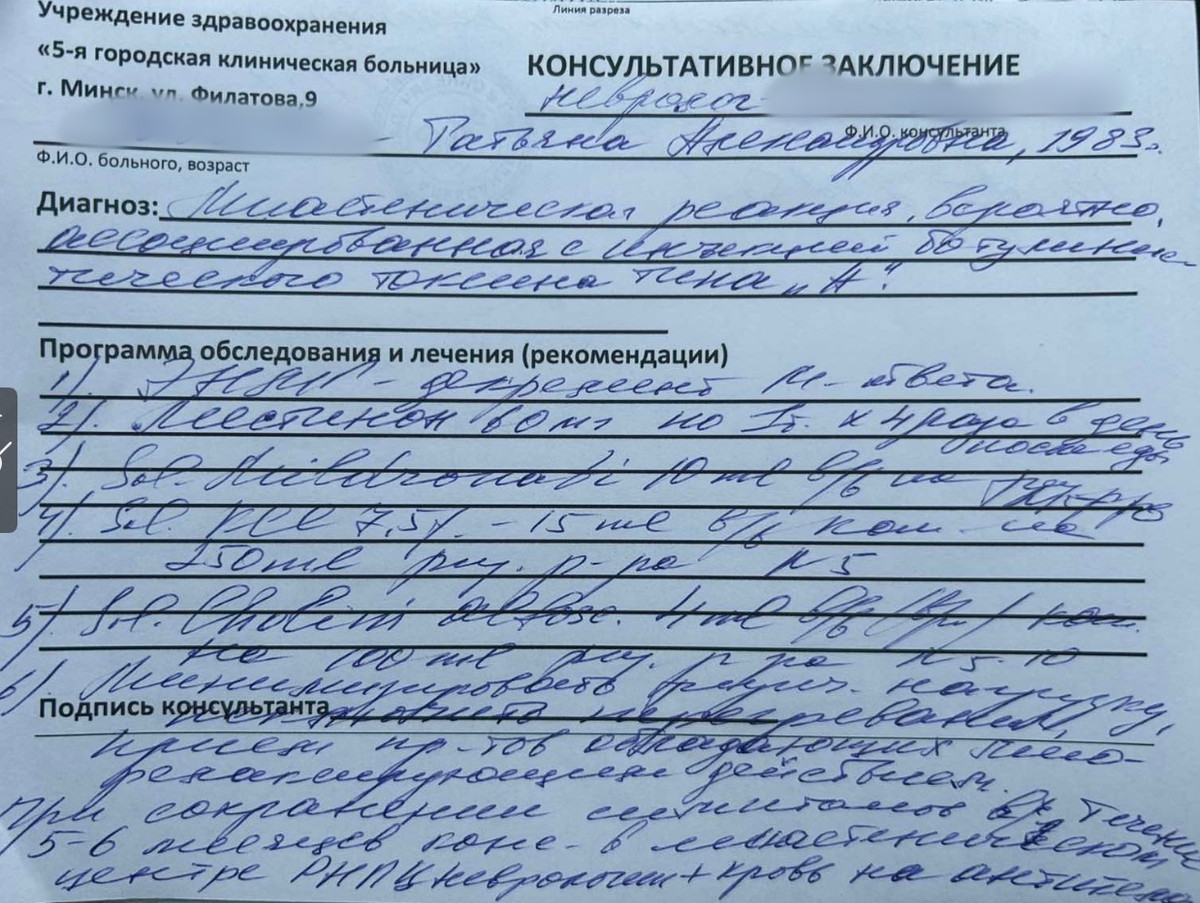 Линия разреза
Учреждение здравоохранения
«5-я городская клиническая больница»
г. Минск, ул. Филатова,9
КОНСУЛЬТАТИВНОЕ ЗАКЛЮЧЕНИЕ
невролог
Ф.И.О. консультанта
Татьяна Александровна, 1983г.
Ф.И.О. больного, возраст
Диагноз: Миастеническая реакция, вероятно,
ассоциированная с инъекцией ботулини-
тического токсина типа „А".
Программа обследования и лечения (рекомендации)
1). ЭНМГ - декремент М-ответа.
2). Местинон 60 мг по 1т. х 4 раза в день
после еды
3). Sol. Mildronati 10 ml в/в на физ. р-ре
4). Sol. KCl 7,5% - 15 ml в/в кап. на
250 ml физ. р-ра N 5
5). Sol. Cholini alfosc. 4 ml в/в кап.
на 100 ml физ. р-ра N 5-10
6). Минимизировать физич. нагрузку,
Подпись консультанта
перегревания,
прием пр-тов обладающих мио-
релаксирующим действием.
При сохранении симптомов в течение
5-6 месяцев конс. в миастеническом
центре РНПЦ неврологии + кровь на антитела